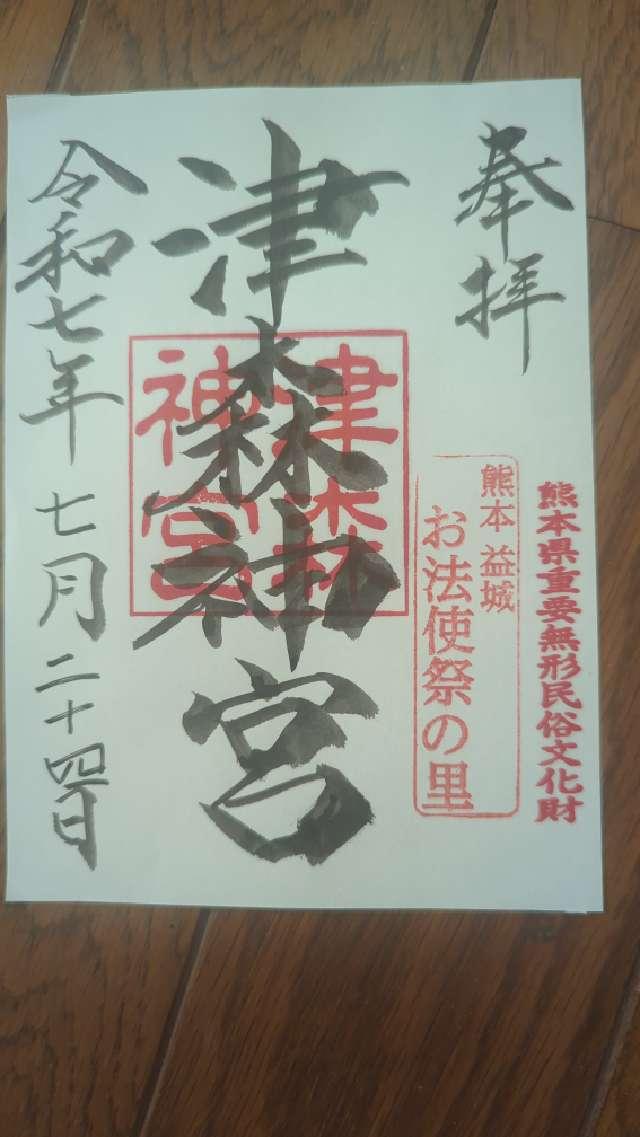 奉拝
熊本県重要無形民俗文化財
熊本 益城
お法使祭の里
津森神宮
津森
神宮
令和七年 七月 二十四日